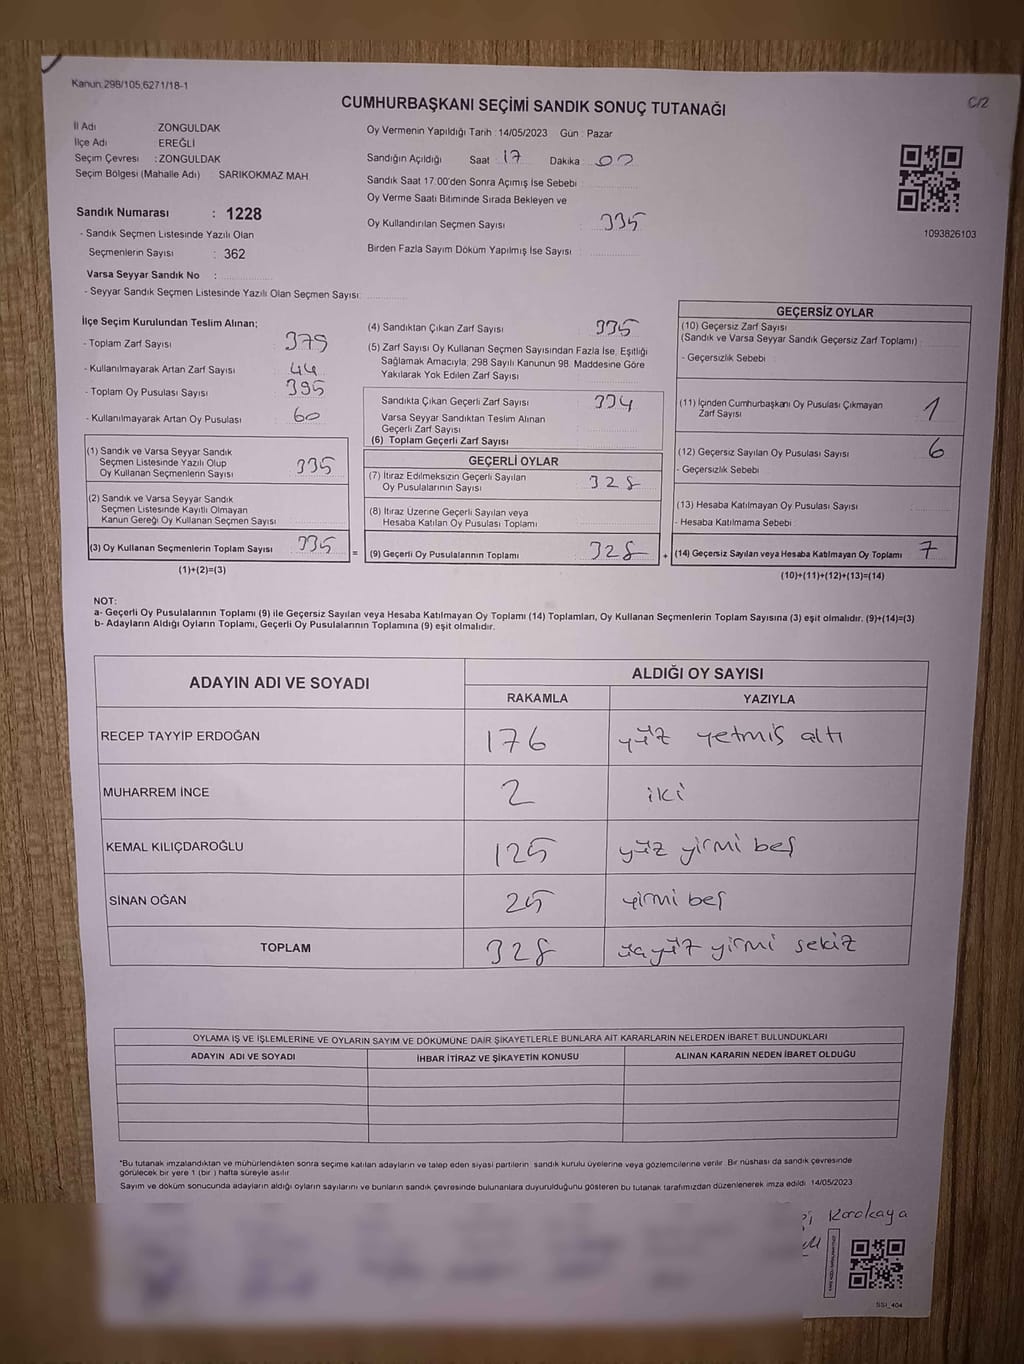 Kanun,298/105,6271/18-1
C/2
CUMHURBAŞKANI SEÇİMİ SANDIK SONUÇ TUTANAĞI
İl Adı ZONGULDAK
İlçe Adı EREĞLİ
Seçim Çevresi : ZONGULDAK
Seçim Bölgesi (Mahalle Adı) SARIKOKMAZ MAH
Sandık Numarası : 1228
- Sandık Seçmen Listesinde Yazılı Olan
Seçmenlerin Sayısı : 362
Varsa Seyyar Sandık No :
- Seyyar Sandık Seçmen Listesinde Yazılı Olan Seçmen Sayısı:
Oy Vermenin Yapıldığı Tarih : 14/05/2023 Gün : Pazar
Sandığın Açıldığı Saat : 17 Dakika : 00
Sandık Saat 17.00'den Sonra Açımış İse Sebebi
Oy Verme Saati Bitiminde Sırada Bekleyen ve
Oy Kullandırılan Seçmen Sayısı : 335
Birden Fazla Sayım Döküm Yapılmış İse Sayısı
1093826103
İlçe Seçim Kurulundan Teslim Alınan;
- Toplam Zarf Sayısı : 379
- Kullanılmayarak Artan Zarf Sayısı : 44
- Toplam Oy Pusulası Sayısı : 395
- Kullanılmayarak Artan Oy Pusulası : 60
(1) Sandık ve Varsa Seyyar Sandık
Seçmen Listesinde Yazılı Olup
Oy Kullanan Seçmenlerin Sayısı 335
(2) Sandık ve Varsa Seyyar Sandık
Seçmen Listesinde Kayıtlı Olmayan
Kanun Gereği Oy Kullanan Seçmen Sayısı
(3) Oy Kullanan Seçmenlerin Toplam Sayısı 335
(1)+(2)=(3)
(4) Sandıktan Çıkan Zarf Sayısı : 335
(5) Zarf Sayısı Oy Kullanan Seçmen Sayısından Fazla İse, Eşitliği
Sağlamak Amacıyla, 298 Sayılı Kanunun 98. Maddesine Göre
Yakılarak Yok Edilen Zarf Sayısı
Sandıkta Çıkan Geçerli Zarf Sayısı 334
Varsa Seyyar Sandıktan Teslim Alınan
Geçerli Zarf Sayısı
(6) Toplam Geçerli Zarf Sayısı
GEÇERLİ OYLAR
(7) İtiraz Edilmeksizin Geçerli Sayılan
Oy Pusulalarının Sayısı 328
(8) İtiraz Üzerine Geçerli Sayılan veya
Hesaba Katılan Oy Pusulası Toplamı
= (9) Geçerli Oy Pusulalarının Toplamı 328
GEÇERSİZ OYLAR
(10) Geçersiz Zarf Sayısı
(Sandık ve Varsa Seyyar Sandık Geçersiz Zarf Toplamı)
- Geçersizlik Sebebi
(11) İçinden Cumhurbaşkanı Oy Pusulası Çıkmayan
Zarf Sayısı 1
(12) Geçersiz Sayılan Oy Pusulası Sayısı 6
- Geçersizlik Sebebi
(13) Hesaba Katılmayan Oy Pusulası Sayısı
- Hesaba Katılmama Sebebi
+ (14) Geçersiz Sayılan veya Hesaba Katılmayan Oy Toplamı 7
(10)+(11)+(12)+(13)=(14)
NOT:
a- Geçerli Oy Pusulalarının Toplamı (9) ile Geçersiz Sayılan veya Hesaba Katılmayan Oy Toplamı (14) Toplamları, Oy Kullanan Seçmenlerin Toplam Sayısına (3) eşit olmalıdır. (9)+(14)=(3)
b- Adayların Aldığı Oyların Toplamı, Geçerli Oy Pusulalarının Toplamına (9) eşit olmalıdır.
ADAYIN ADI VE SOYADI ALDIĞI OY SAYISI
RAKAMLA YAZIYLA
RECEP TAYYİP ERDOĞAN 176 yüz yetmiş altı
MUHARREM İNCE 2 iki
KEMAL KILIÇDAROĞLU 125 yüz yirmi beş
SİNAN OĞAN 25 yirmi beş
TOPLAM 328 üçyüz yirmi sekiz
OYLAMA İŞ VE İŞLEMLERİNE VE OYLARIN SAYIM VE DÖKÜMÜNE DAİR ŞİKAYETLERLE BUNLARA AİT KARARLARIN NELERDEN İBARET BULUNDUKLARI
ADAYIN ADI VE SOYADI İHBAR İTİRAZ VE ŞİKAYETİN KONUSU ALINAN KARARIN NEDEN İBARET OLDUĞU
*Bu tutanak imzalandıktan ve mühürlendikten sonra seçime katılan adayların ve talep eden siyasi partilerin sandık kurulu üyelerine veya gözlemcilerine verilir. Bir nüshası da sandık çevresinde
görülecek bir yere 1 (bir ) hafta süreyle asılır.
Sayım ve döküm sonucunda adayların aldığı oyların sayılarını ve bunların sandık çevresinde bulunanlara duyurulduğunu gösteren bu tutanak tarafımızdan düzenlenerek imza edildi. 14/05/2023
Karakaya
SSI_404